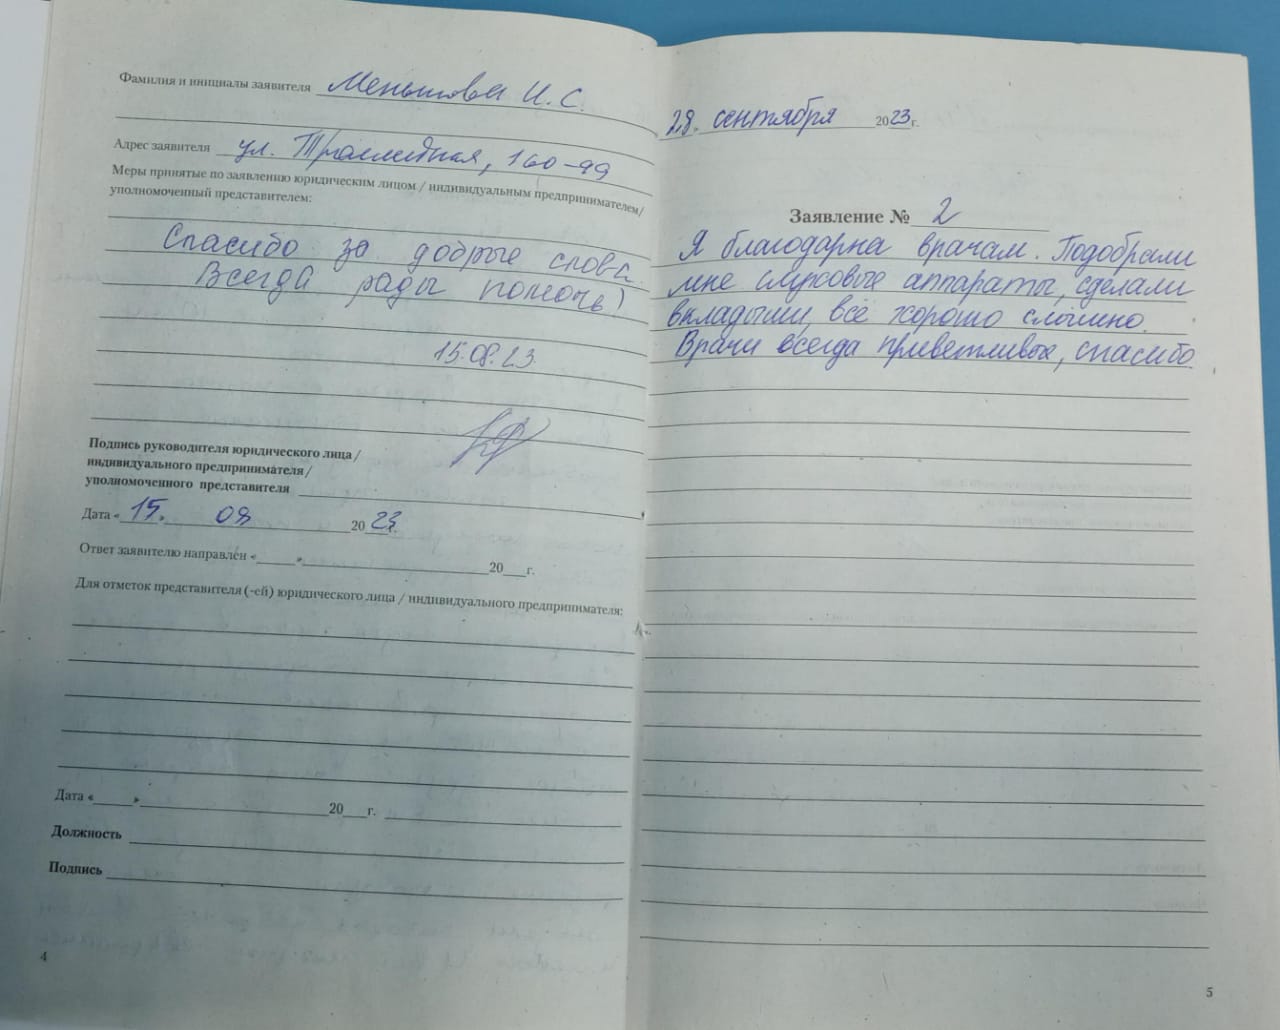 Фамилия и инициалы заявителя Меньшова И. С.
Адрес заявителя ул. 160-99
Меры принятые по заявлению юридическим лицом / индивидуальным предпринимателем/
уполномоченный представителем:
Спасибо за добрые слова.
Всегда рады помочь!
15.08.23.
Подпись руководителя юридического лица /
индивидуального предпринимателя /
уполномоченного представителя
Дата « 15 » 08 2023 г.
Ответ заявителю направлен «____»____ 20___г.
Для отметок представителя (-ей) юридического лица / индивидуального предпринимателя:
Дата «____»____ 20___г.
Должность
Подпись
4
28. сентября 2023 г.
Заявление № 2
Я благодарна врачам. Подобрали
мне слуховые аппараты, сделали
вкладыши, всё хорошо слышно.
Врачи всегда приветливы, спасибо
5